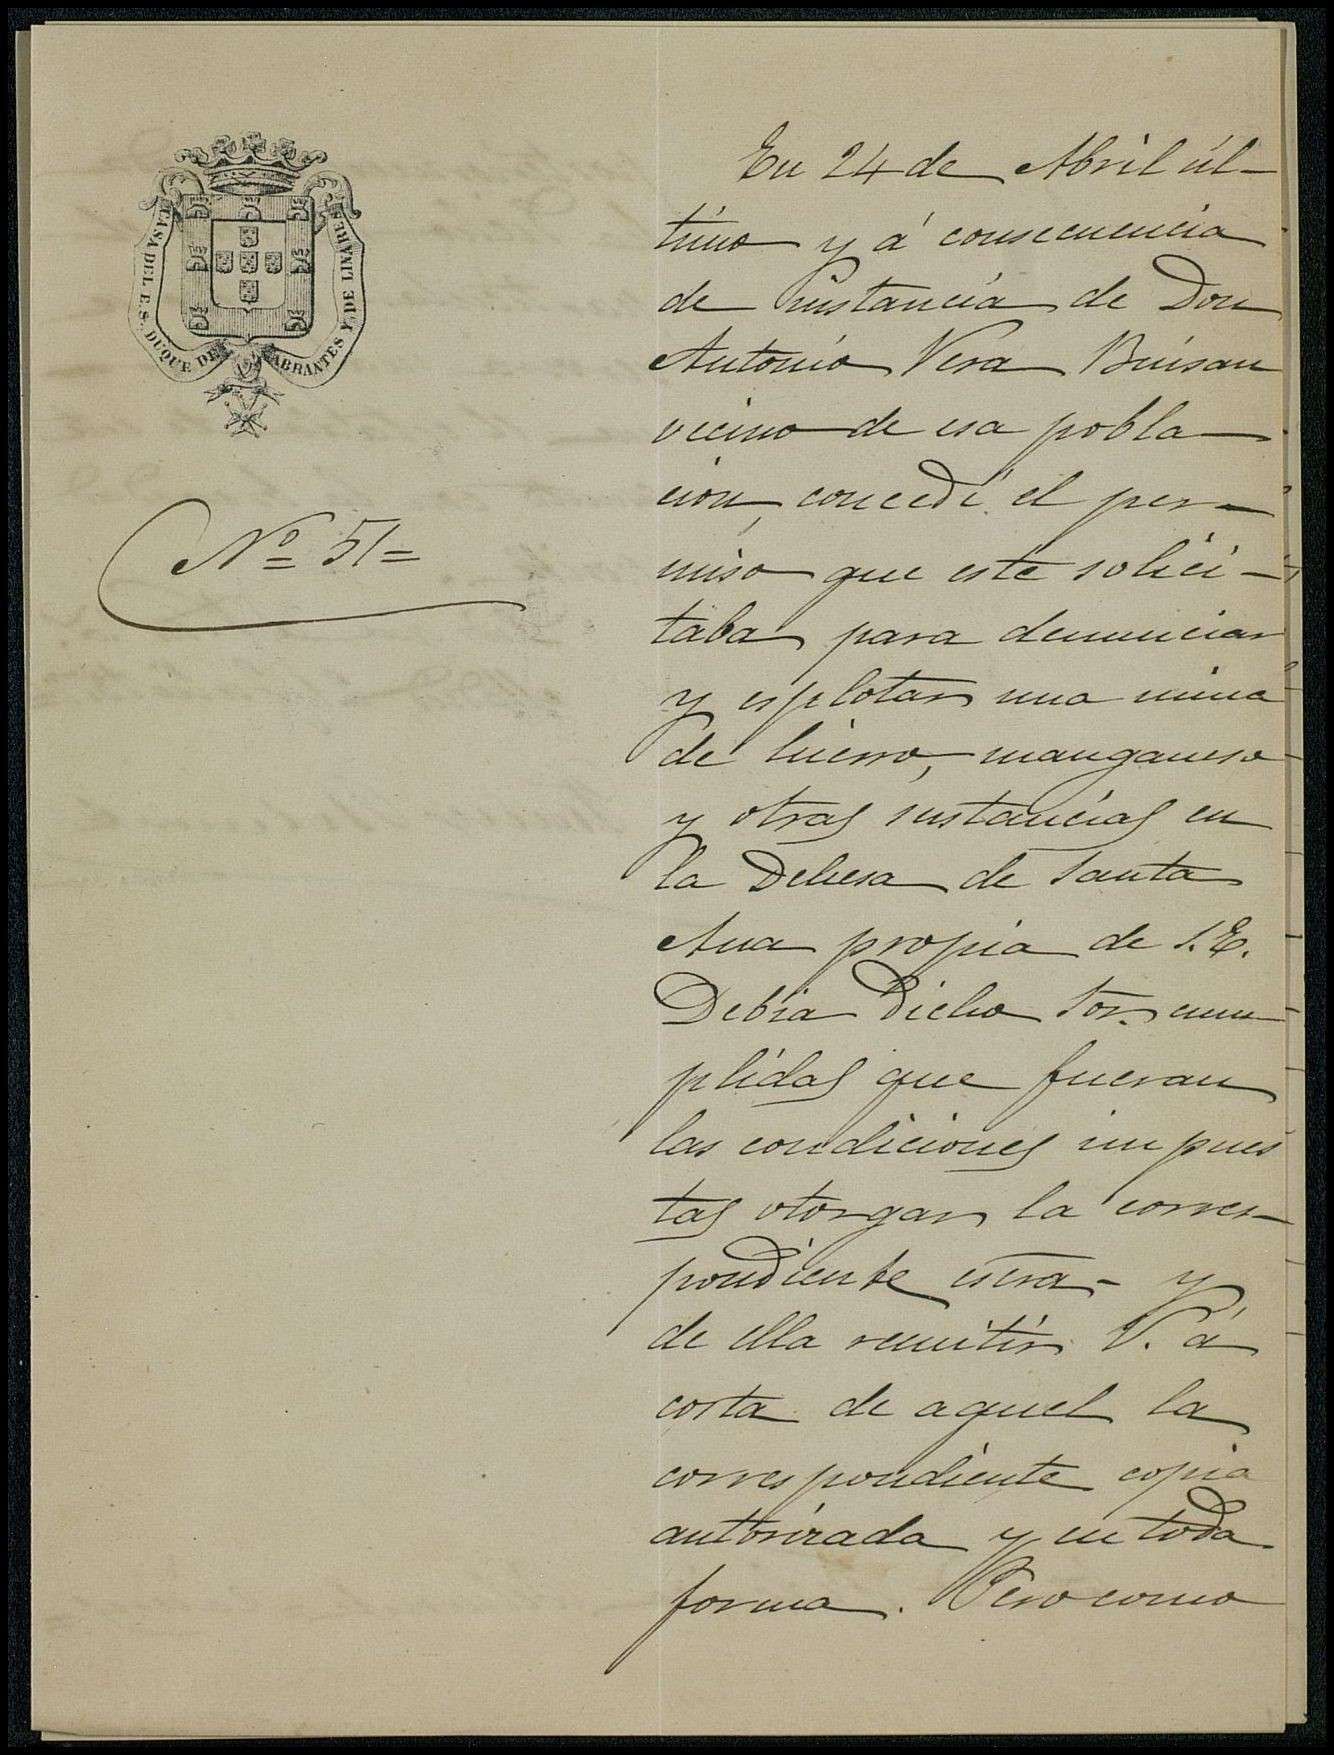 CASA DEL E.S. DUQUE DE ABRANTES Y DE LINARES
Nº 51=
En 24 de Abril úl-
timo y á consecuencia
de instancia de Don
Antonio Vera Buisan
vecino de esa pobla-
cion, concedí el per-
miso que este solici-
taba para denunciar
y esplotar una mina
de hierro, manganeso
y otras sustancias en
la Dehesa de Santa
Ana propia de S.E.
Debia dicho Sor. cum
plidas que fueran
las condiciones impues
tas otorgar la corres-
pondiente esсra- y
de ella remitir V. á
costa de aquel la
correspondiente copia
autorizada y en toda
forma. Pero como